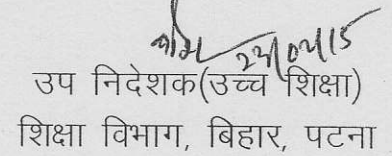 22/04/15
उप निदेशक(उच्च शिक्षा)
शिक्षा विभाग, बिहार, पटना